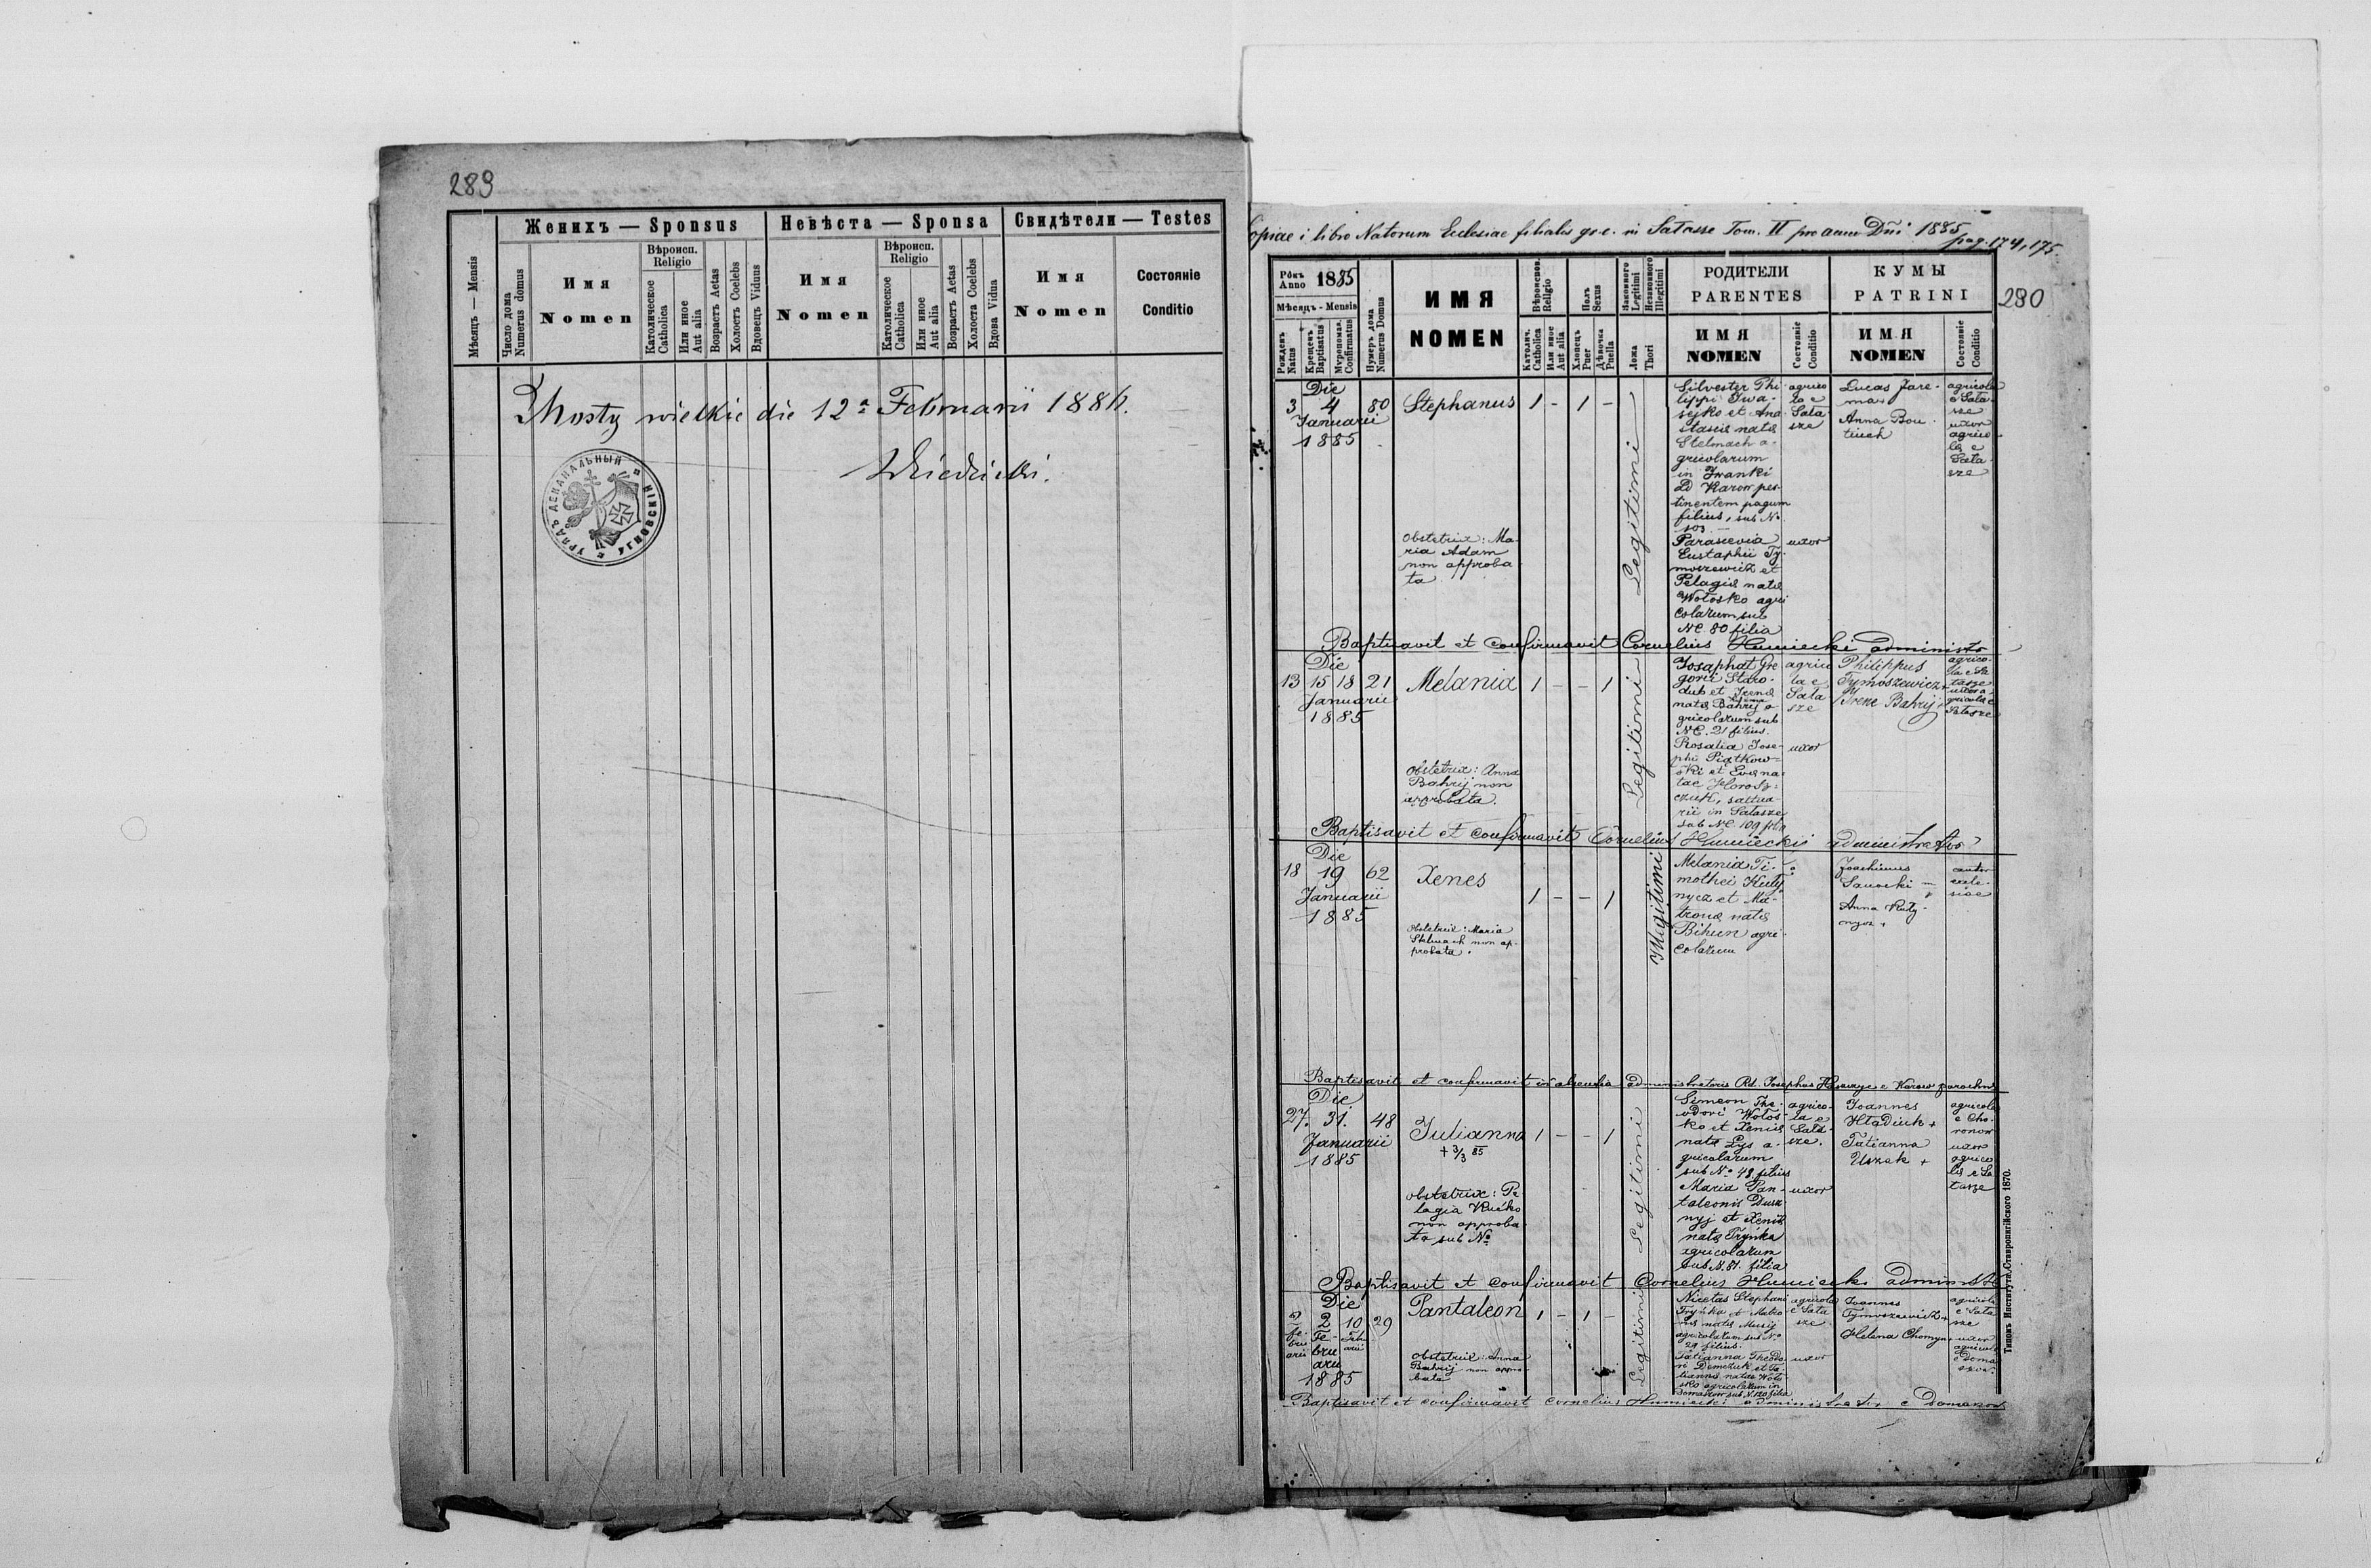 289
Женихъ — Sponsus
Невѣста — Sponsa
Свидѣтели — Testes
Мѣсяцъ — Mensis
Число дома
Numerus domus
Имя
Nomen
Вѣроисп.
Religio
Католическое
Catholica
Или иное
Aut alia
Возрастъ Aetas
Холостъ Coelebs
Вдовецъ Viduus
Имя
Nomen
Вѣроисп.
Religio
Католическое
Catholica
Или иное
Aut alia
Возрастъ Aetas
Холоста Coelebs
Вдова Vidua
Имя
Nomen
Состояніе
Conditio
Mosty wielkie die 12a Februarii 1886.
УРЯДЪ ДЕКАНАЛЬНЫЙ УГНОВСКІЙ
opiae i libro Natorum Ecclesiae filialis gr. c. in Satasze Tom. II pro anno Dni 1885
pag. 174, 175.
280
Рôкъ
Anno 1885
Мѣсяцъ - Mensis
Рожденъ
Natus
Крещенъ
Baptisatus
Мѵропомаз.
Confirmatus
Нумеръ дома
Numerus Domus
ИМЯ
NOMEN
Вѣроиспов.
Religio
Католич.
Catholica
Или иное
Aut alia
Полъ
Sexus
Хлопецъ
Puer
Дѣвочка
Puella
Законного
Legitimi
Незаконного
Illegitimi
Ложа
Thori
РОДИТЕЛИ
PARENTES
ИМЯ
NOMEN
Состояніе
Conditio
КУМЫ
PATRINI
ИМЯ
NOMEN
Состояніе
Conditio
Die
3 4 80
Januarii
1885
Stephanus 1 - 1 -
obstetrix: Ma-
ria Adam
non approba
ta
Legitimi
Silvester Phi-
lippi Iwa-
sejko et Ana
stasiæ natæ
Stelmach a-
gricolarum
in Iwanki
ad Karow per-
tinentem pagum
filius, sub No
103
Parascevia
Eustaphii Ty-
moszewicz et
Pelagiæ natæ
Wołosko agri
colarum sub
NC. 80 filia
agrico
la e
Sata-
sze
uxor
Lucas Jare-
ma +
Anna Bou-
tiuch
agricola
e Sata-
sze
uxor
agrico
læ e
Sata-
sze
Baptisavit et confirmavit Cornelius Humiecki administr
Die
13 15 18 21
Januarii
1885
Melania 1 - - 1
obstetrix: Anna
Bahrij non
approbata.
Legitimi
Josaphat Gre
gorii Staro-
dub et Irenæ
natæ Bahrij a-
gricolarum sub
NC. 21 filius.
Rosalia Jose-
phi Piątkow-
ski et Evæ na-
tae Horoszczuk, saltua-
rii in Satasze
sub NC 109 filia
agrico
la e
Sata
sze
uxor
Philippus
Tymoszewicz +
Irene Bahrij +
agrico-
la e Sa
tasze
uxor a-
gricolæ e
Satasze
Baptisavit et confirmavit Cornelius Humiecki administrator
Die
18 19 62
Januarii
1885
Xenes
1 - - 1
obstetrix: Maria
Stelmach non ap-
probata.
Illegitimi
Melania Ti-
mothei Kuty
nycz et Ma-
tronæ natæ
Bihun agri-
colarum
Joachimus
Sanocki
Anna Kuty-
nycz +
cantor
eccle-
siae
Baptisavit et confirmavit in absentia administratoris Rd. Josephus e Karow parochus
Die
27. 31. 48
Januarii
1885
Julianna 1 - - 1
+ 3/3 85
obstetrix: Pe
lagia Kućko
non approba-
ta sub No
Legitimi
Simeon The-
odori Wołos-
ko et Xeniæ
natæ Lys a-
gricolarum
sub No 48 filius
Maria Pan-
taleonis Dusz-
nyj et Xeniæ
natæ Tryńka
agricolarum
sub N. 81. filia
agrico-
la e
Sata-
sze.
uxor
Joannes
Hładiuk +
Tatianna
Uszak +
agricola
e Cho-
ronow
uxor
agrico
læ e Sa
tasze
Baptisavit et confirmavit Cornelius Humiecki administr
Die
2 2 10 29
Fe-
bru
arii
Fe-
bru
arii
Febru
arii
1885
Pantaleon 1 - 1 -
obstetrix: Anna
Bahrij non appro-
bata
Legitimi
Nicetas Stephani
Tryńka et
natæ Musij
agricolarum sub No
29 filius.
Tatianna Theodo-
ri Demczuk et Ta-
tiannæ natae Woło
sko agricolarum in
Domaszow sub N. 120 filia
agricola
e Sata
sze
uxor
Joannes
Tymoszewicz +
Helena Chomyn +
agricola
e Sata
sze
uxor
agricolæ
e Doma
szow
Baptisavit et confirmavit Cornelius Humiecki administrator e Domaszow
Типомъ Института Ставропигійского 1870.